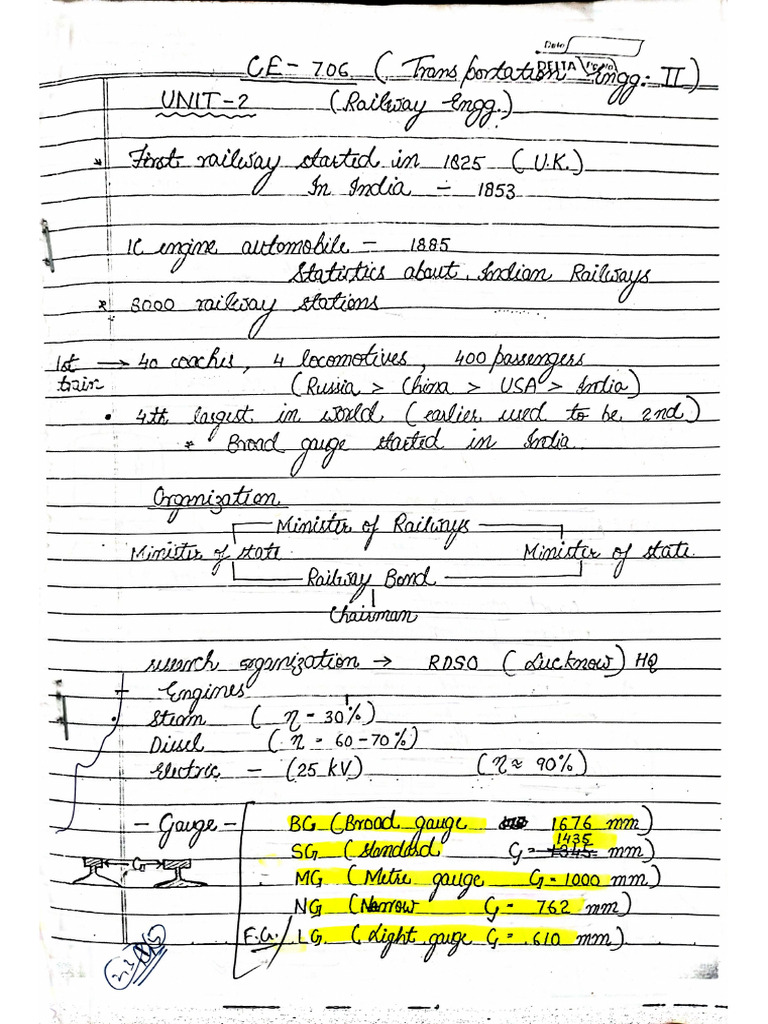 Date
DELTA Pg No
CE - 706 ( Transportation Engg. II )
UNIT-2 (Railway Engg.)
* First railway started in 1825 ( U.K.)
In India ÷ 1853
IC engine automobile - 1885
Statistics about Indian Railways
* 8000 railway stations
1st train → 40 coaches, 4 locomotives, 400 passengers
(Russia > China > USA > India)
• 4th largest in world (earlier used to be 2nd)
* Broad gauge started in India
Organization
Minister of Railways
Minister of state Minister of state
Railway Bond
Chairman
research organization → RDSO (Lucknow) HQ
Engines
• Steam ( η - 30%)
Diesel ( η - 60-70%)
Electric - (25 kV) (η ≈ 90%)
- Gauge - BG (Broad gauge 1676 mm)
1435
SG (Standard G = 1345 mm)
G
MG (Metre gauge G - 1000 mm)
NG (Narrow G = 762 mm)
F.G./ LG ( Light gauge G = .610 mm)